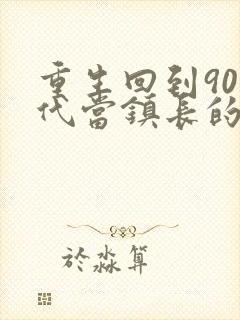 重生回到90
代當鎮長的
於淼算